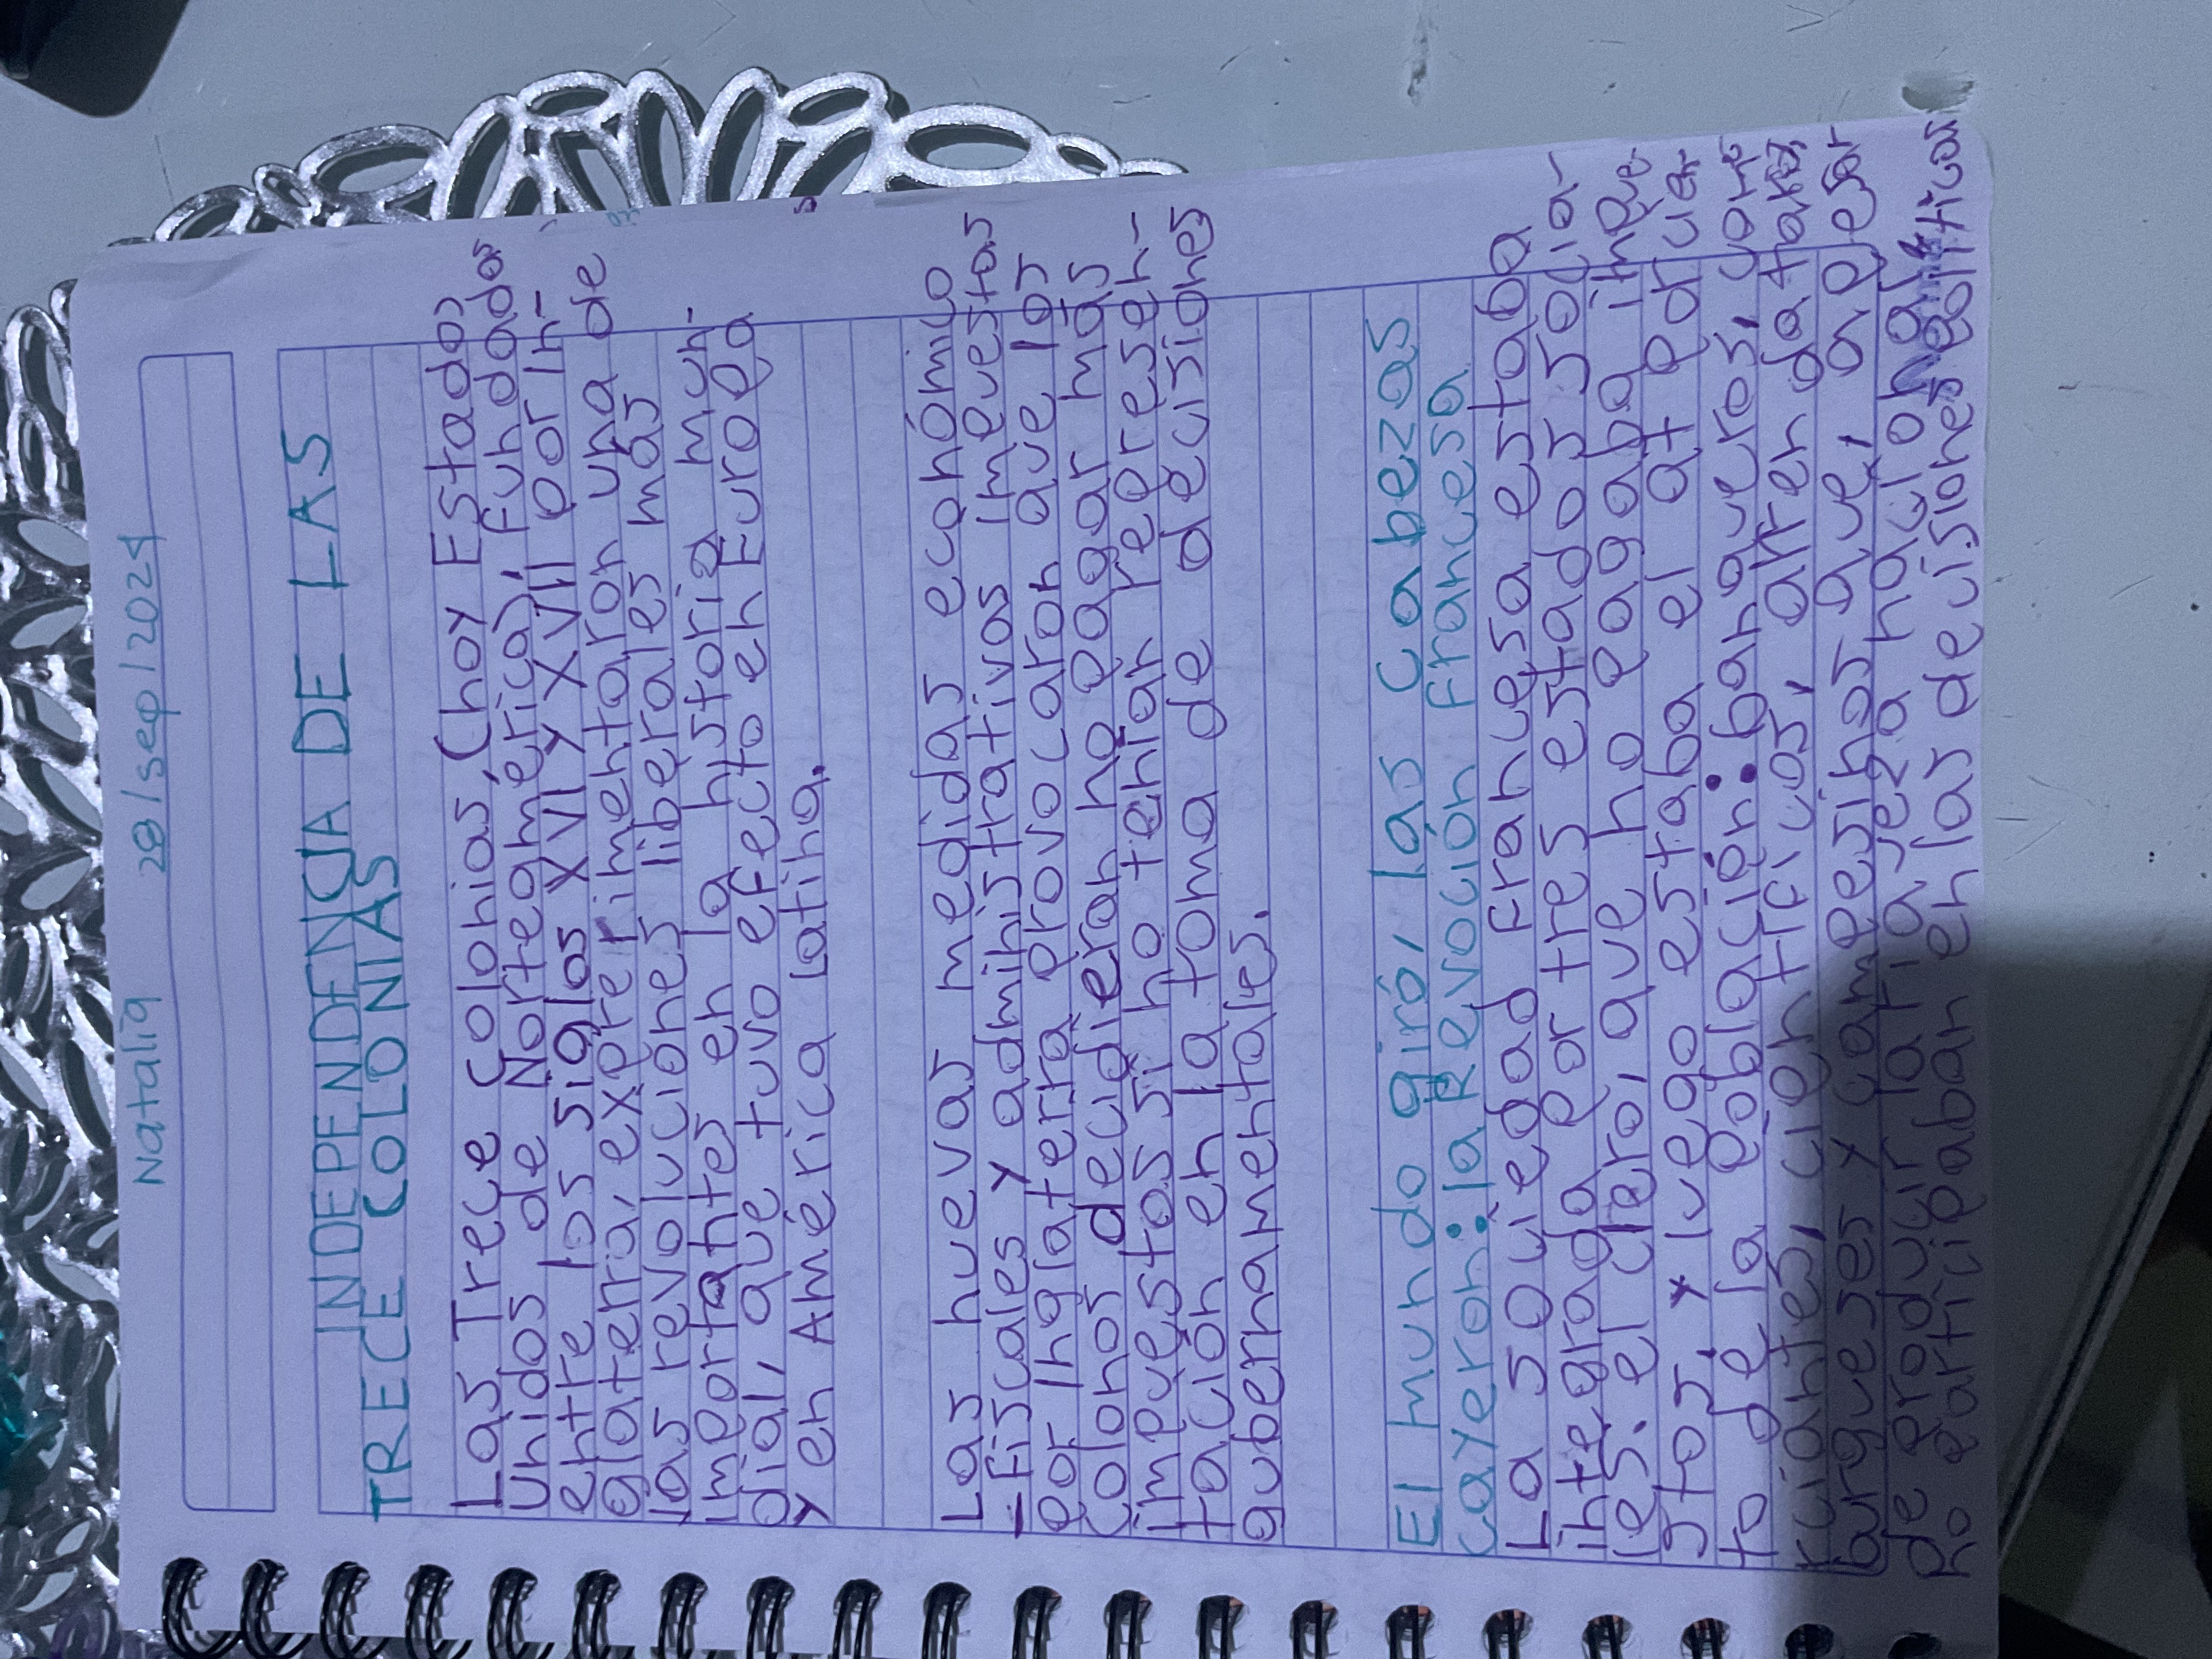 Natalia 28/sep/2024
INDEPENDENCIA DE LAS
TRECE COLONIAS
Las Trece Colonias, (hoy Estados
unidos de Norteamérica), fundadas
entre los siglos XVII y XVIII por In-
glaterra, experimentaron una de
las revoluciones liberales más
importantes en la historia mun-
dial, que tuvo efecto en Europa
y en América latina.
Las nuevas medidas económico
-fiscales y administrativas impuestas
por Inglaterra provocaron que los
colonos decidieran no pagar más
impuestos si no tenían represen-
tación en la toma de decisiones
gubernamentales.
El mundo giró, las cabezas
cayeron: la Revoción francesa
La sociedad francesa estaba
integrada por tres estados socia-
les: el clero, que no pagaba impue-
stos, y luego estaba el
to de la población: banqueros, come
rciantes, científicos, arrendatarios,
burgueses y campesinos que, a pesar
de producir la riqueza nacional,
no participaban en las decisiones políticas